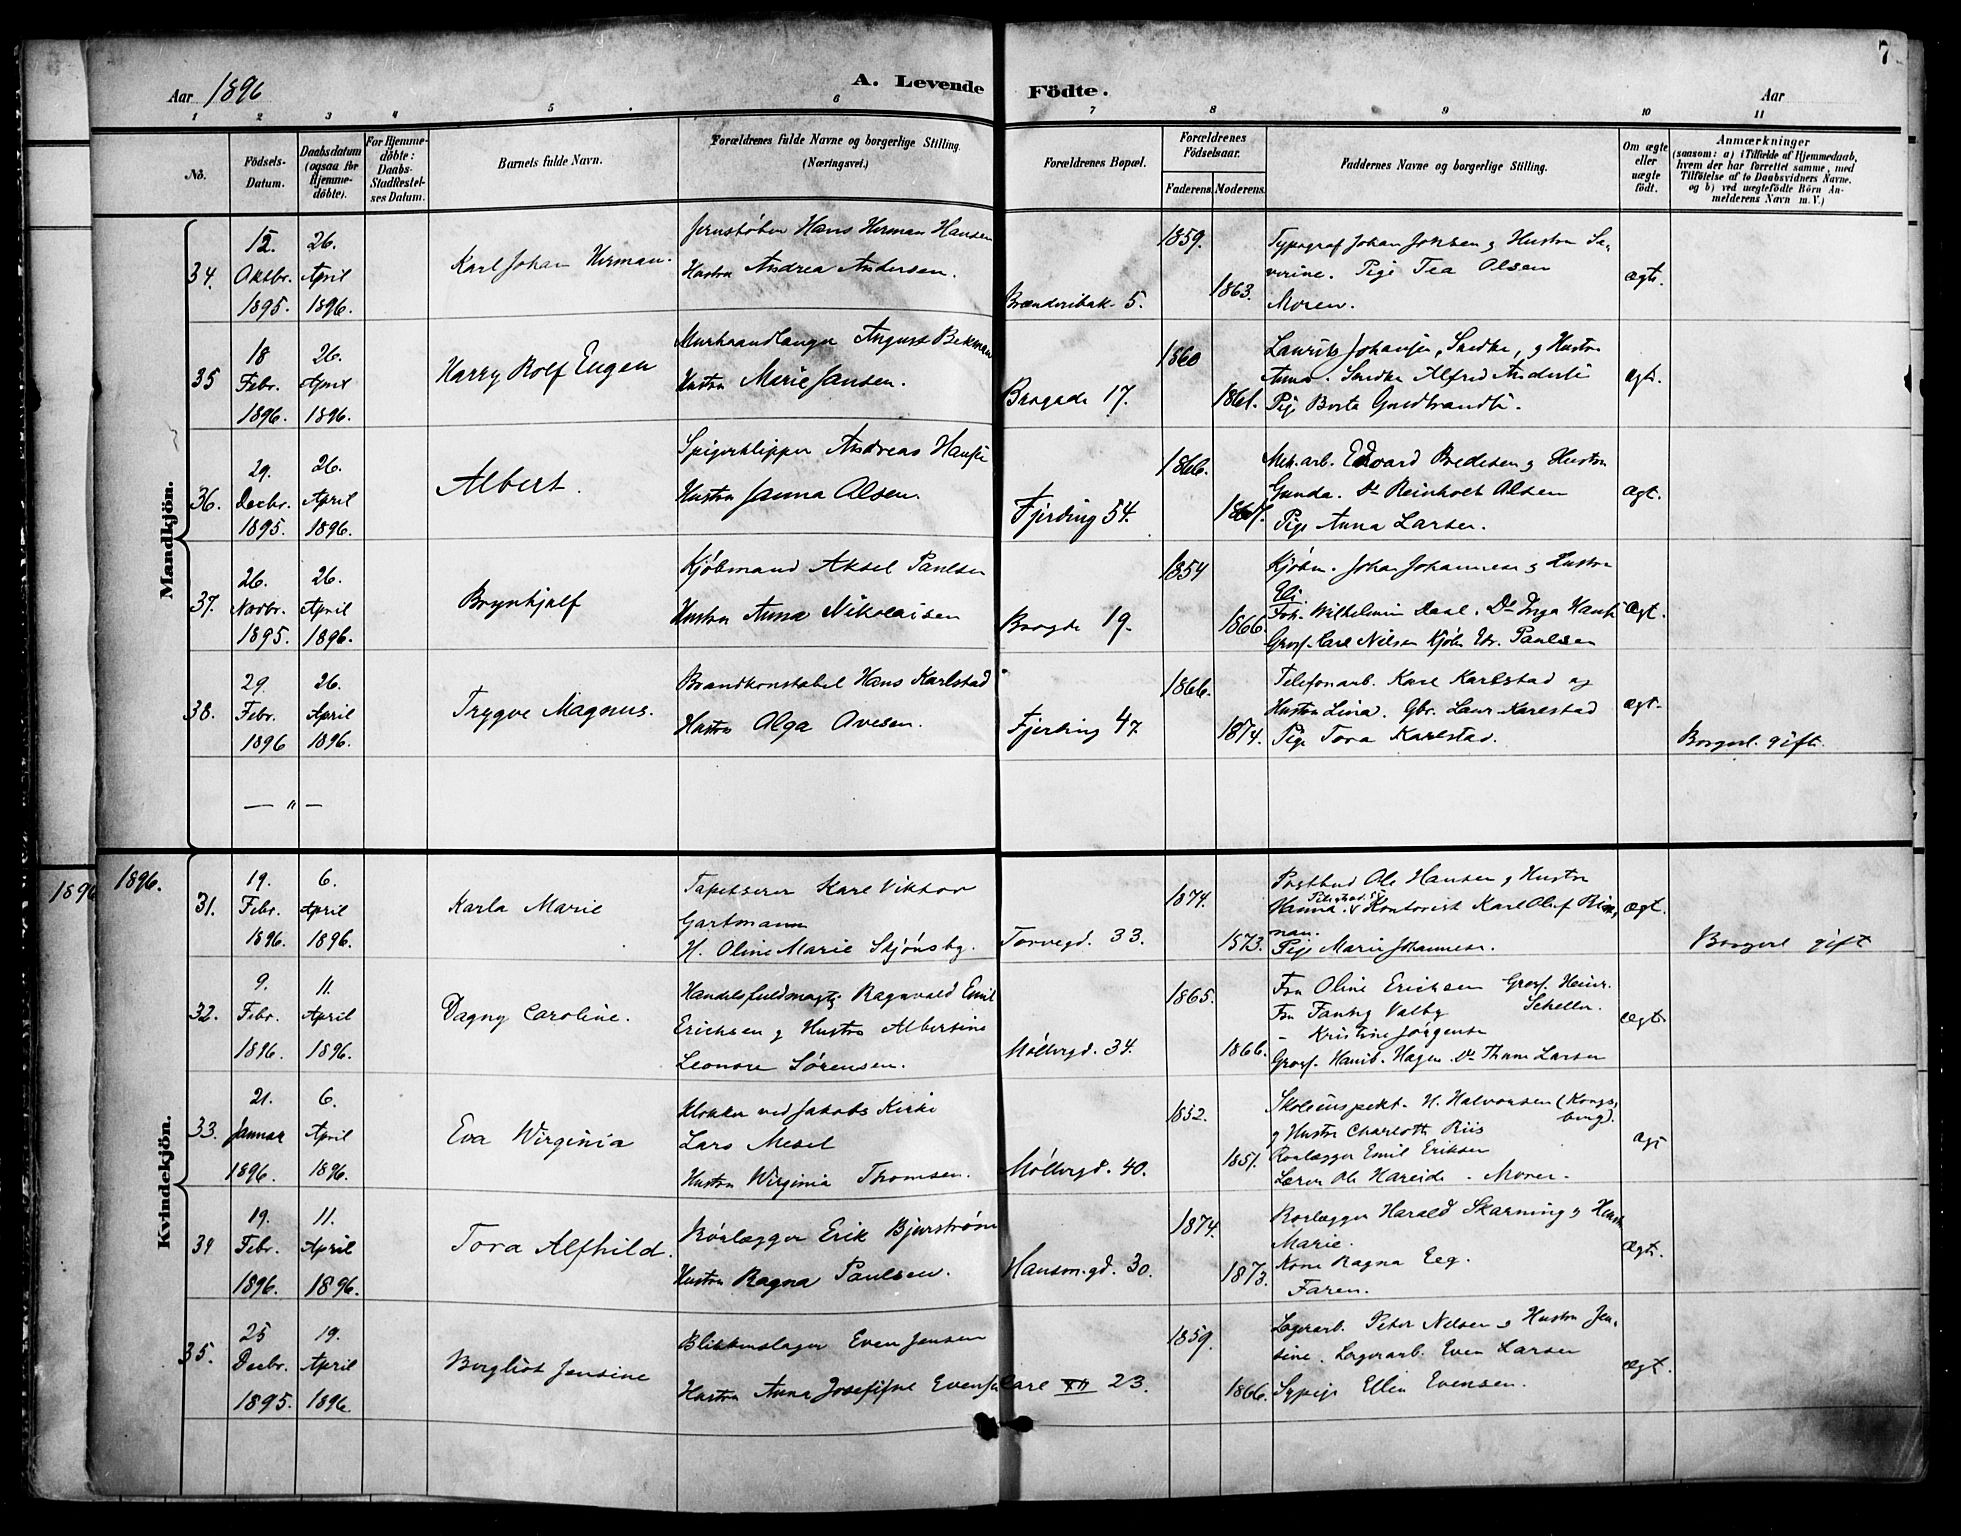 7
Aar 1896
A. Levende Födte.
Aar
1 2 3 4 5 6 7 8 9 10 11
No.
Födsels-Datum.
Daabsdatum (ogsaa for Hjemmedöbte).
For Hjemmedöbte: Daabs-Stadfæstelses Datum.
Barnets fulde Navn.
Forældrenes fulde Navne og borgerlige Stilling.
(Næringsvei.)
Forældrenes Bopæl.
Forældrenes Födselsaar.
Faderens. Moderens.
Faddernes Navne og borgerlige Stilling.
Om ægte eller uægte födt.
Anmærkninger
(saasom: a) i Tilfælde af Hjemmedaab,
hvem der har forrettet samme, med
Tilföielse af to Daabsvidners Navne,
og b) ved uægtefödte Börn An-
melderens Navn m. V.)
Mandkjön.
34.
12. Oktbr. 1895.
26. April 1896.
Karl Johan Herman.
Jernstøber Hans Herman Hansen
Hustru Andrea Andersen.
Brænneribak. 5.
1859.
1863.
Typograf Johan Jensen og Hustru Se-
verine. Pige Tea Olsen
Moren.
ægt.
35
18 Febr. 1896.
26. April 1896.
Harry Rolf Eugen
Murhaandlanger August Bekman
Hustru Marie Jansen.
Brogade 17.
1860
1861.
Laurits Johansen, Snedker, og Hustru
Anna. Snedker Alfred Andersen
Pige Berta Gundbrandsen.
ægt.
36.
29. Decbr. 1895.
26. April 1896.
Albert.
Spigerklipper Andreas Hansen
Hustru Janna Olsen.
Fjerding 54.
1866.
Mek. arb. Edvard Bredesen og Hustru
Gunda. Do Reinholt Olsen
Pige Anna Larsen.
ægt.
37.
26. Novbr. 1895.
26. April 1896.
Brynhjulf
Kjøbmand Aksel Paulsen
Hustru Anna Nikolaisen
Brogde 19.
1854
1866.
Kjøbm. Johan Johannesen og Hustru
Eli.
Frk. Wilhelmine Daal. Do Inga Hansen
Gross. Karl Nilsen Kjøbm Edv. Paulsen
ægt.
38.
29. Febr. 1896
26. April 1896.
Trygve Magnus.
Brandkonstabel Hans Karlstad
Hustru Olga Ovesen.
Fjerding 47
1866.
1874.
Telefonarb. Karl Karlstad og
Hustru Lina. Gbr. Laur. Karlstad
Pige Tora Karlstad.
ægt.
Borgerl. gift.
— " —
Kvindekjön.
1896
1896.
31.
19. Febr. 1896.
6. April 1896.
Karla Marie
Tapetserer Karl Viktor
Gartmann
H. Oline Marie Skjønsby.
Torvegd. 33.
1874.
1873.
Postbud Ole Hansen og Hustru
Hanna. Kontorist Karl Olof
man.
Pige Marie Johannesen.
ægt.
Borgerl gift
32.
9. Febr. 1896.
11. April 1896.
Dagny Caroline.
Handelsfuldmægtig Ragnvald Emil
Erichsen og Hustru Albertine
Leonore Sørensen.
Møllergd. 34.
1865.
1866.
Fru Oline Erichsen Gross. Heinr.
Fru Fanny Valby Scheller.
- Kristine Jørgensen
Gross. Hanib. Hagen. Do Thom Larsen
ægt.
33.
21. Januar 1896.
6. April 1896.
Eva Wirginia
Klokker ved Jakobs Kirke
Lars Mesel
Hustru Wirginia Thomsen.
Møllergd. 40.
1852.
1851.
Skoleinspekt. H. Halvorsen (Kongs-
berg).
og Hustru Charlotte Riis
Rørlægger Emil Eriksen
Lærer Ole Hareide - Moren.
ægt
34
19. Febr. 1896.
11. April 1896.
Tora Alfhild.
Rørlægger Erik Bjurstrøm
Hustru Ragna Paulsen.
Hansm.gd. 30.
1874.
1873.
Rørlægger Harald Skarning og Hustru
Marie.
Kone Ragna Eeg.
Faren.
ægt.
35.
25 Decbr. 1895.
19. April 1896.
Bergliot Jensine
Blikkenslager Even Jensen
Hustru Anna Josefine Evensen
Carl XII 23.
1859.
1866.
Lagerarb. Peter Nelsen og Hustru Jen-
sine. Lagerarb. Even Larsen
Sypige Ellen Evensen.
ægt.